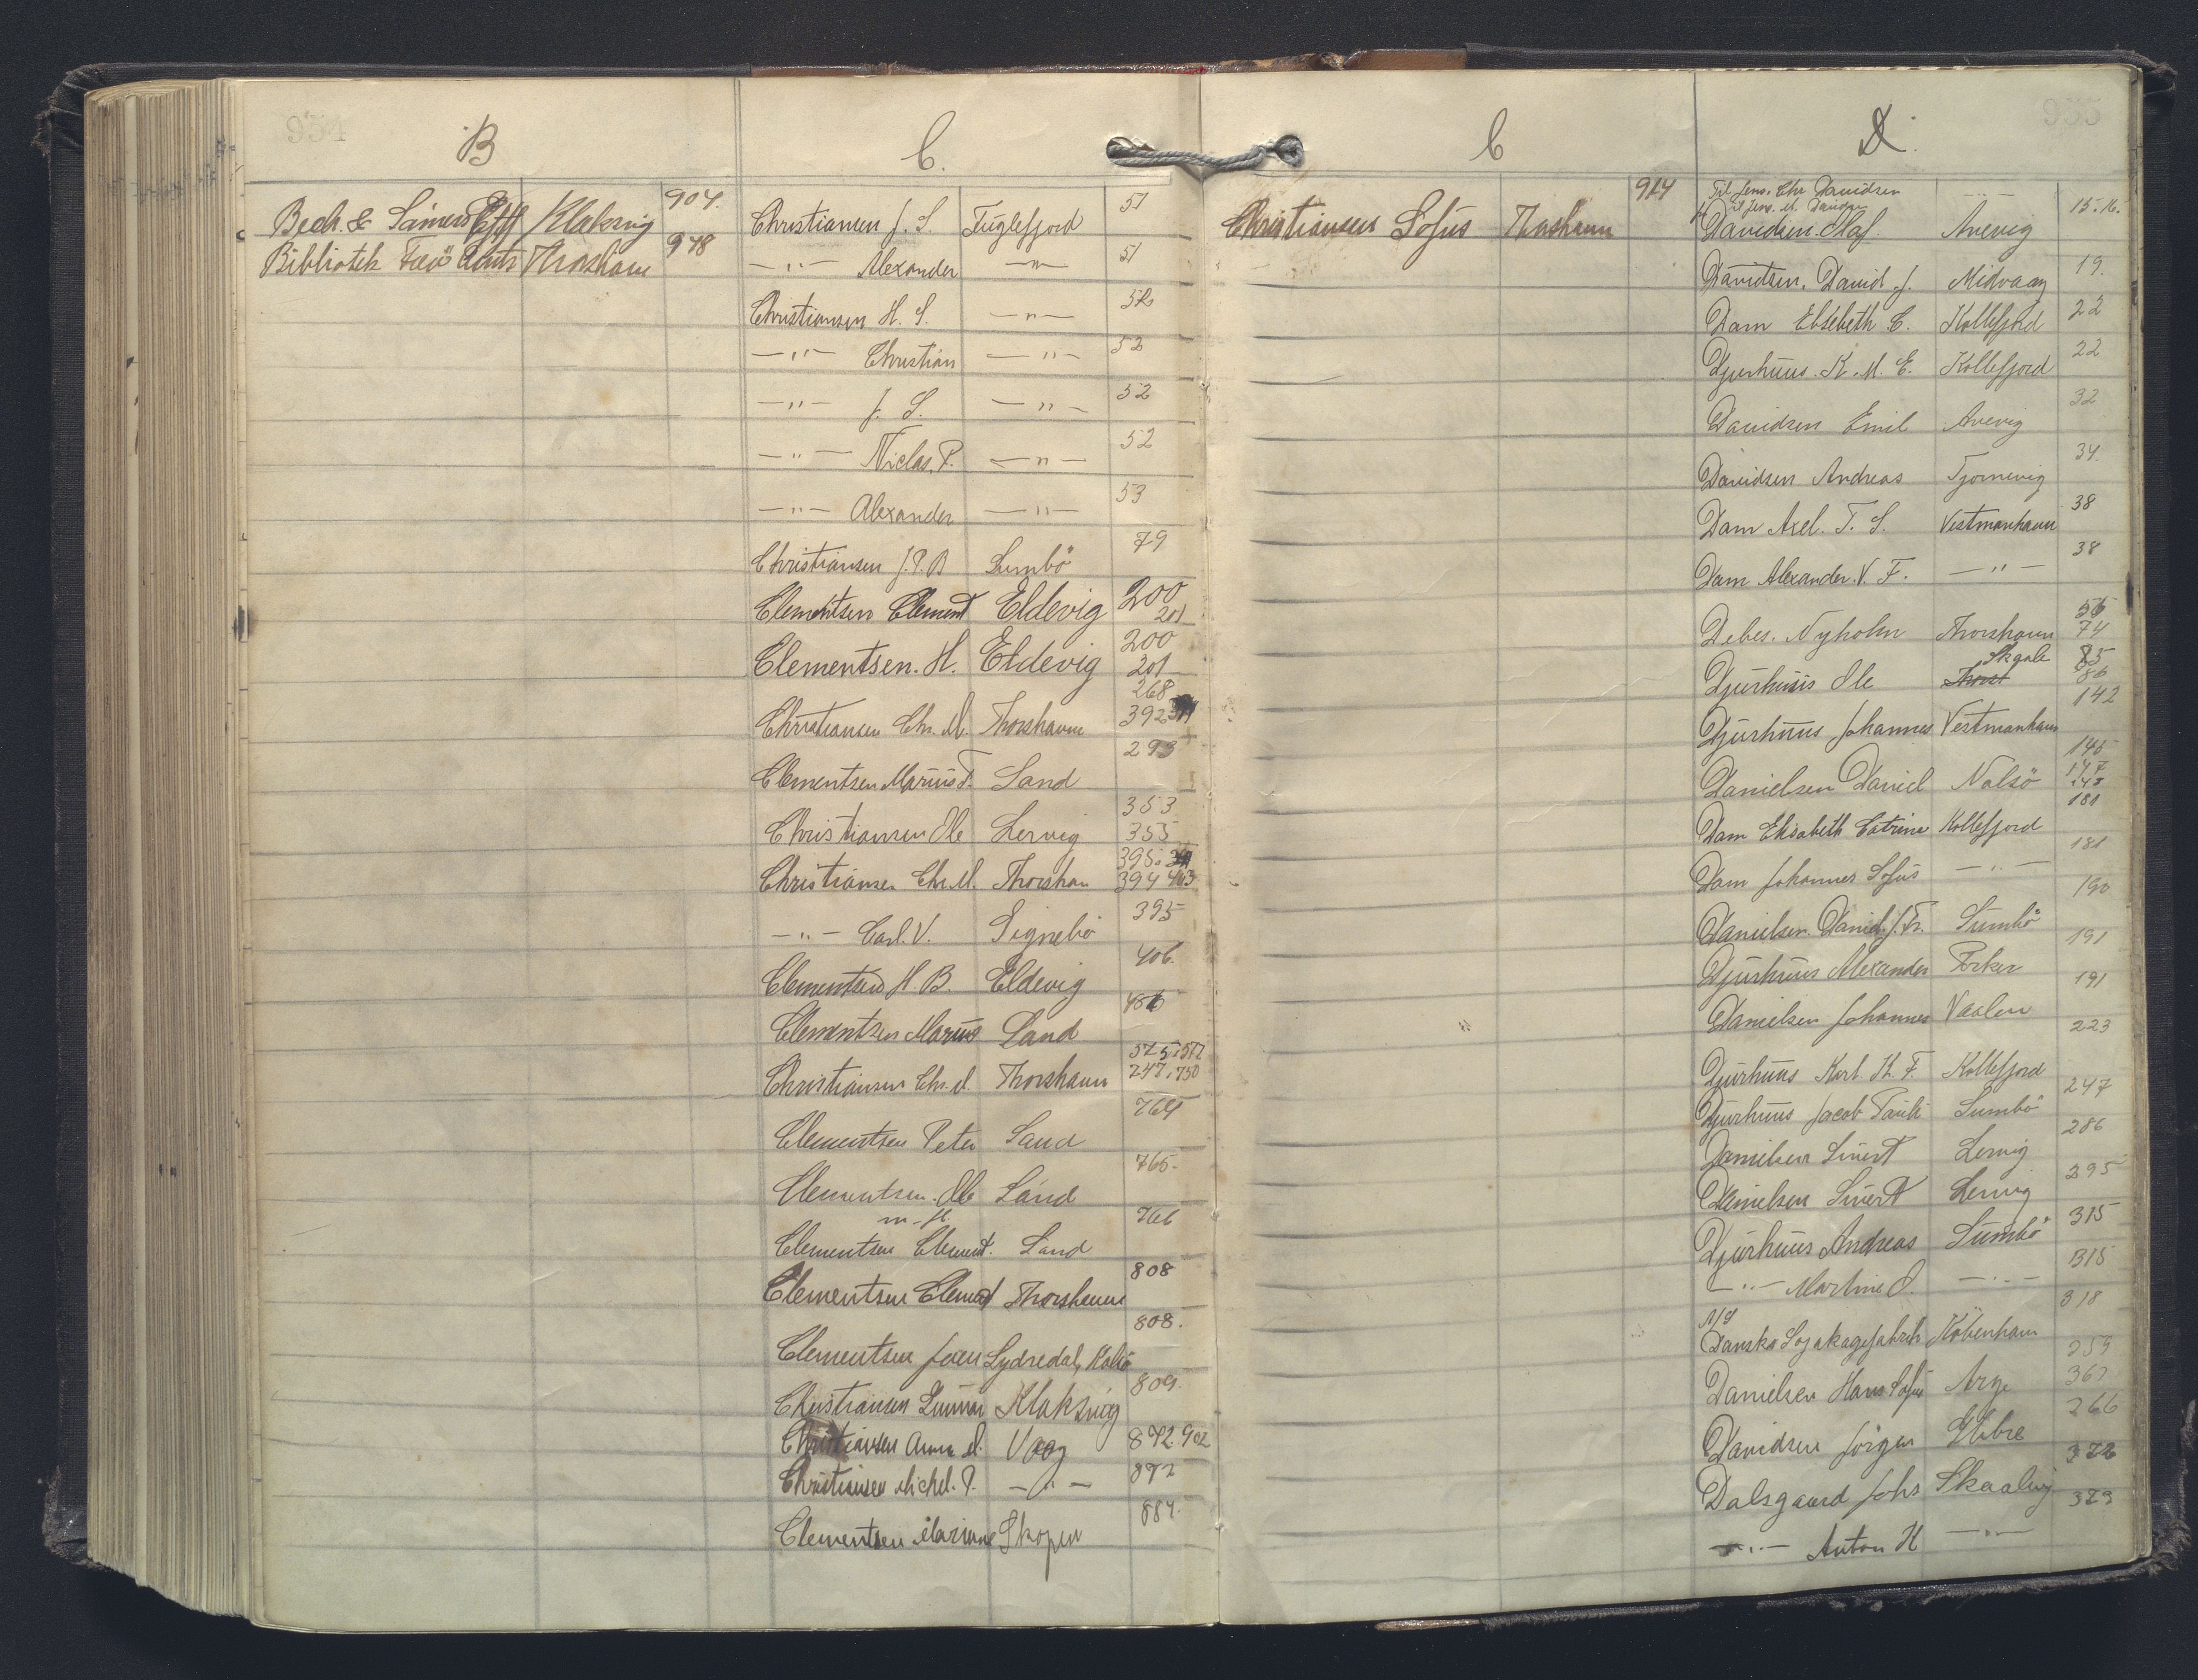 934
B
Bech. & Sämers Eftf Klaksvig 904.
Bibliotek Færö Amts Thorshavn 948
C.
Christiansen J. S. Fuglefjord 51
—"— Alexander —"— 51
Christiansen H. S. —"— 52
—"— Christian —"— 52
—"— J. S. —"— 52
—"— Niclas. P. —"— 52
—"— Alexander —"— 53
Christiansen J. P. B Sumbö 79
Clementsen Clement Eldevig 200 201
Clementsen. H. Eldevig 200 201
Christiansen Chr. M. Thorshavn 268 392
Clementsen Marius F. Sand 293
Christiansen Ole Lervig 353 355
Christiansen Chr. M. Thorshavn 395. 394 403
—"— Carl. V. Signebö 395
Clementsen H. B. Eldevig 406.
Clementsen Marius Sand
Christiansen Chr. M. Thorshavn 525. 747. 750
Clementsen Peter Sand 764
Clementsen. Ole m-fl. Sand 765.
Clementsen Clement. Sand 766
Clementsen Clement Thorshavn 808
Clementsen Joen Sydredal, Kalsö 808.
Christiansen Gunnar Klaksvig 809.
Christiansen Anna M. Vaag 892 902
Christiansen Michel. P. —"— 892
Clementsen Mariane Skopen 884.
C
Christiansen Sofus Thorshavn 914
935
D.
Til Jens. Chr Davidsen
Til Jens. M. Davidsen
Davidsen. Olaf. Avevig 15. 16.
Davidsen. David J. Midvaag 19.
Dam Elsebeth C. Kollefjord 22
Djurhuus. K. M. E. Kollefjord 22
Davidsen Emil Avevig 32
Davidsen Andreas Tjornevig 34.
Dam Axel. T. S. Vestmanhavn 38
Dam Alexander. V. F. —"— 38
Debes. Nyholm Thorshavn 56 74
Djurhuus Ole Skaale Thorsh 85 86
Djurhuus Johannes Vestmanhavn 142
Danielsen Daniel Nolsö 145 147 248
Dam Elisabeth Catrine Kollefjord 181
Dam Johannes Sofus —"— 181
Danielsen. Daniel. J. Fr. Sumbö 190
Djurhuus Alexander Porker 191
Danielsen Johannes Vaalen 191
Djurhuus Karl. K. F. Kollefjord 223
Djurhuus Jacob Pauli Sumbö 247
Danielsen Sivert Lervig 286
Danielsen Sivert Lervig 295
Djurhuus Andreas Sumbö 315
—"— Martin O. —"— 315
A/S
Danske Sojakagefabrik Köbenhavn 318
Danielsen Hans Sofus Arge 359 367
Davidsen Jörgen Glibre 266
Dalsgaard Johs Skaalevig 322
—"— Anton H —"— 323